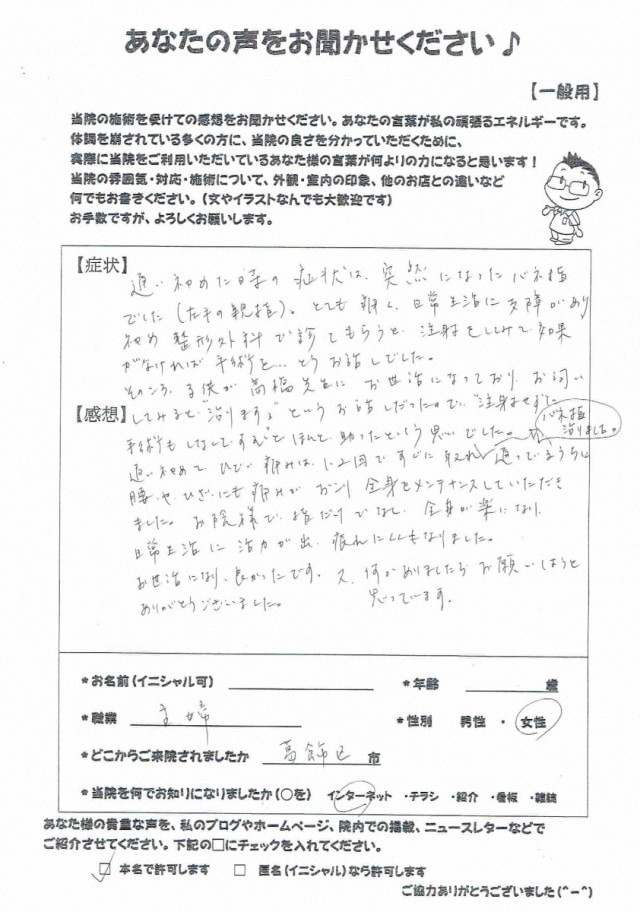 あなたの声をお聞かせください♪
【一般用】
当院の施術を受けての感想をお聞かせください。あなたの言葉が私の頑張るエネルギーです。
体調を崩されている多くの方に、当院の良さを分かっていただくために、
実際に当院をご利用いただいているあなた様の言葉が何よりの力になると思います！
当院の雰囲気・対応・施術について、外観・室内の印象、他のお店との違いなど
何でもお書きください。（文やイラストなんでも大歓迎です）
お手数ですが、よろしくお願いします。
【症状】
通い初めた時の症状は、突然になったバネ指
でした（左手の親指）。とても痛く、日常生活に支障があり
初め整形外科で診てもらうと、注射をしてみて効果
がなければ手術を…とうお話しでした。
そのころ、子供が高橋先生にお世話になっており、お伺い
【感想】
してみると"治りますよ"というお話しだったので、"注射せずに
手術もしなくてすむ"とほんと助ったという思いでした。
バネ指
治りました。
通い初めてひどい痛みは、1、2回ですぐに取れ、通っているうちに
腰や、ひざにも痛みがあり全身をメンテナンスしていただき
ました。お陰様で、指だけでなく、全身が楽になり、
日常生活に活力が出、疲れにくくもなりました。
お世話になり、良かったです。又、何かありましたらお願いしようと
思っています。
ありがとうございました。
*お名前（イニシャル可）
*年齢 歳
*職業 主婦
*性別 男性 ・ 女性
*どこからご来院されましたか 葛飾区 市
*当院を何でお知りになりましたか（○を） インターネット ・チラシ ・紹介 ・看板 ・雑誌
あなた様の貴重な声を、私のブログやホームページ、院内での掲載、ニュースレターなどで
ご紹介させてください。下記の□にチェックを入れてください。
□ 本名で許可します □ 匿名（イニシャル）なら許可します
ご協力ありがとうございました（^－^）